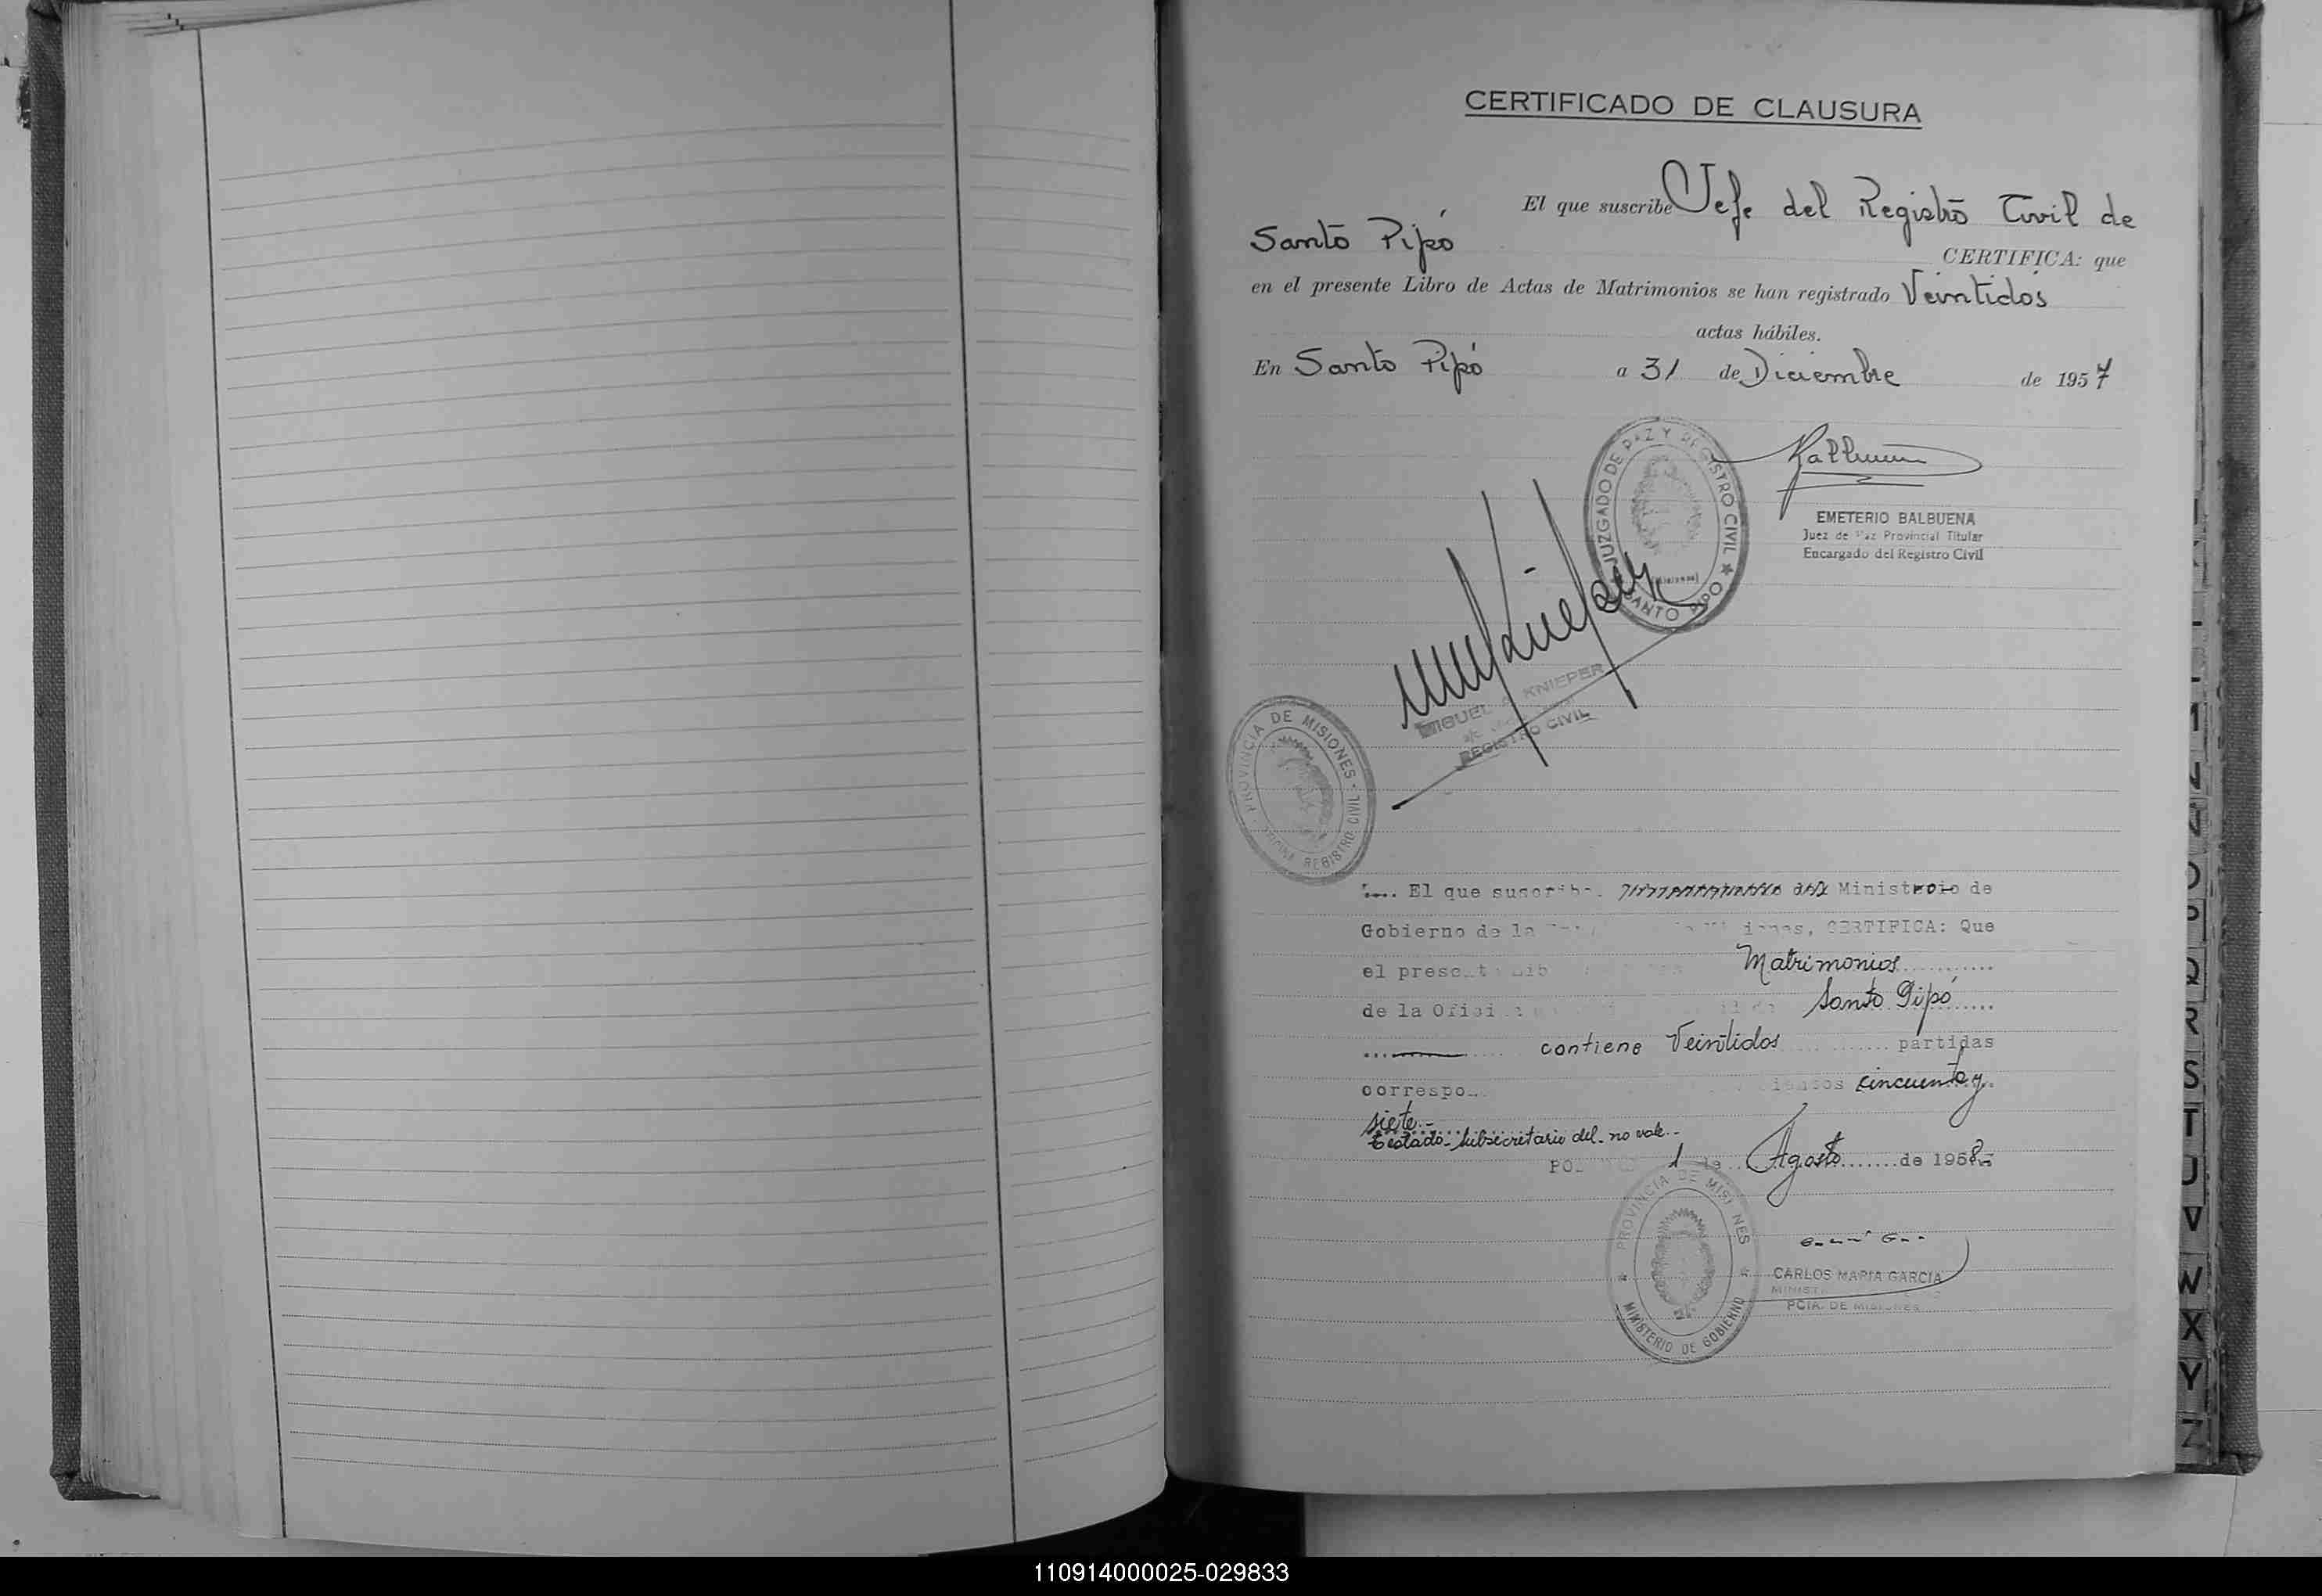 CERTIFICADO DE CLAUSURA
El que suscribe Jefe del Registro Civil de
Santo Pipó
CERTIFICA: que
en el presente Libro de Actas de Matrimonios se han registrado Veintidós
actas hábiles.
En Santo Pipó a 31 de Diciembre de 1957
JUZGADO DE PAZ Y REGISTRO CIVIL
SANTO PIPO
(Misiones)
EMETERIO BALBUENA
Juez de Paz Provincial Titular
Encargado del Registro Civil
MIGUEL KNIEPER
REGISTRO CIVIL
PROVINCIA DE MISIONES - CIVIL
OFICINA REGISTRO
El que suscribe Ministerio de
Gobierno de la CERTIFICA: Que
el Matrimonios
de la Santo Pipó
contiene Veintidos partidas
cincuenta y
siete.-
Testado - Subsecretario del - no vale -
1 de Agosto de 1958
PROVINCIA DE MISIONES
MINISTERIO DE GOBIERNO
CARLOS MARIA GARCIA
PCIA. DE MISIONES
M
N
O
P
Q
R
S
T
U
V
W
X
Y
Z
110914000025-029833